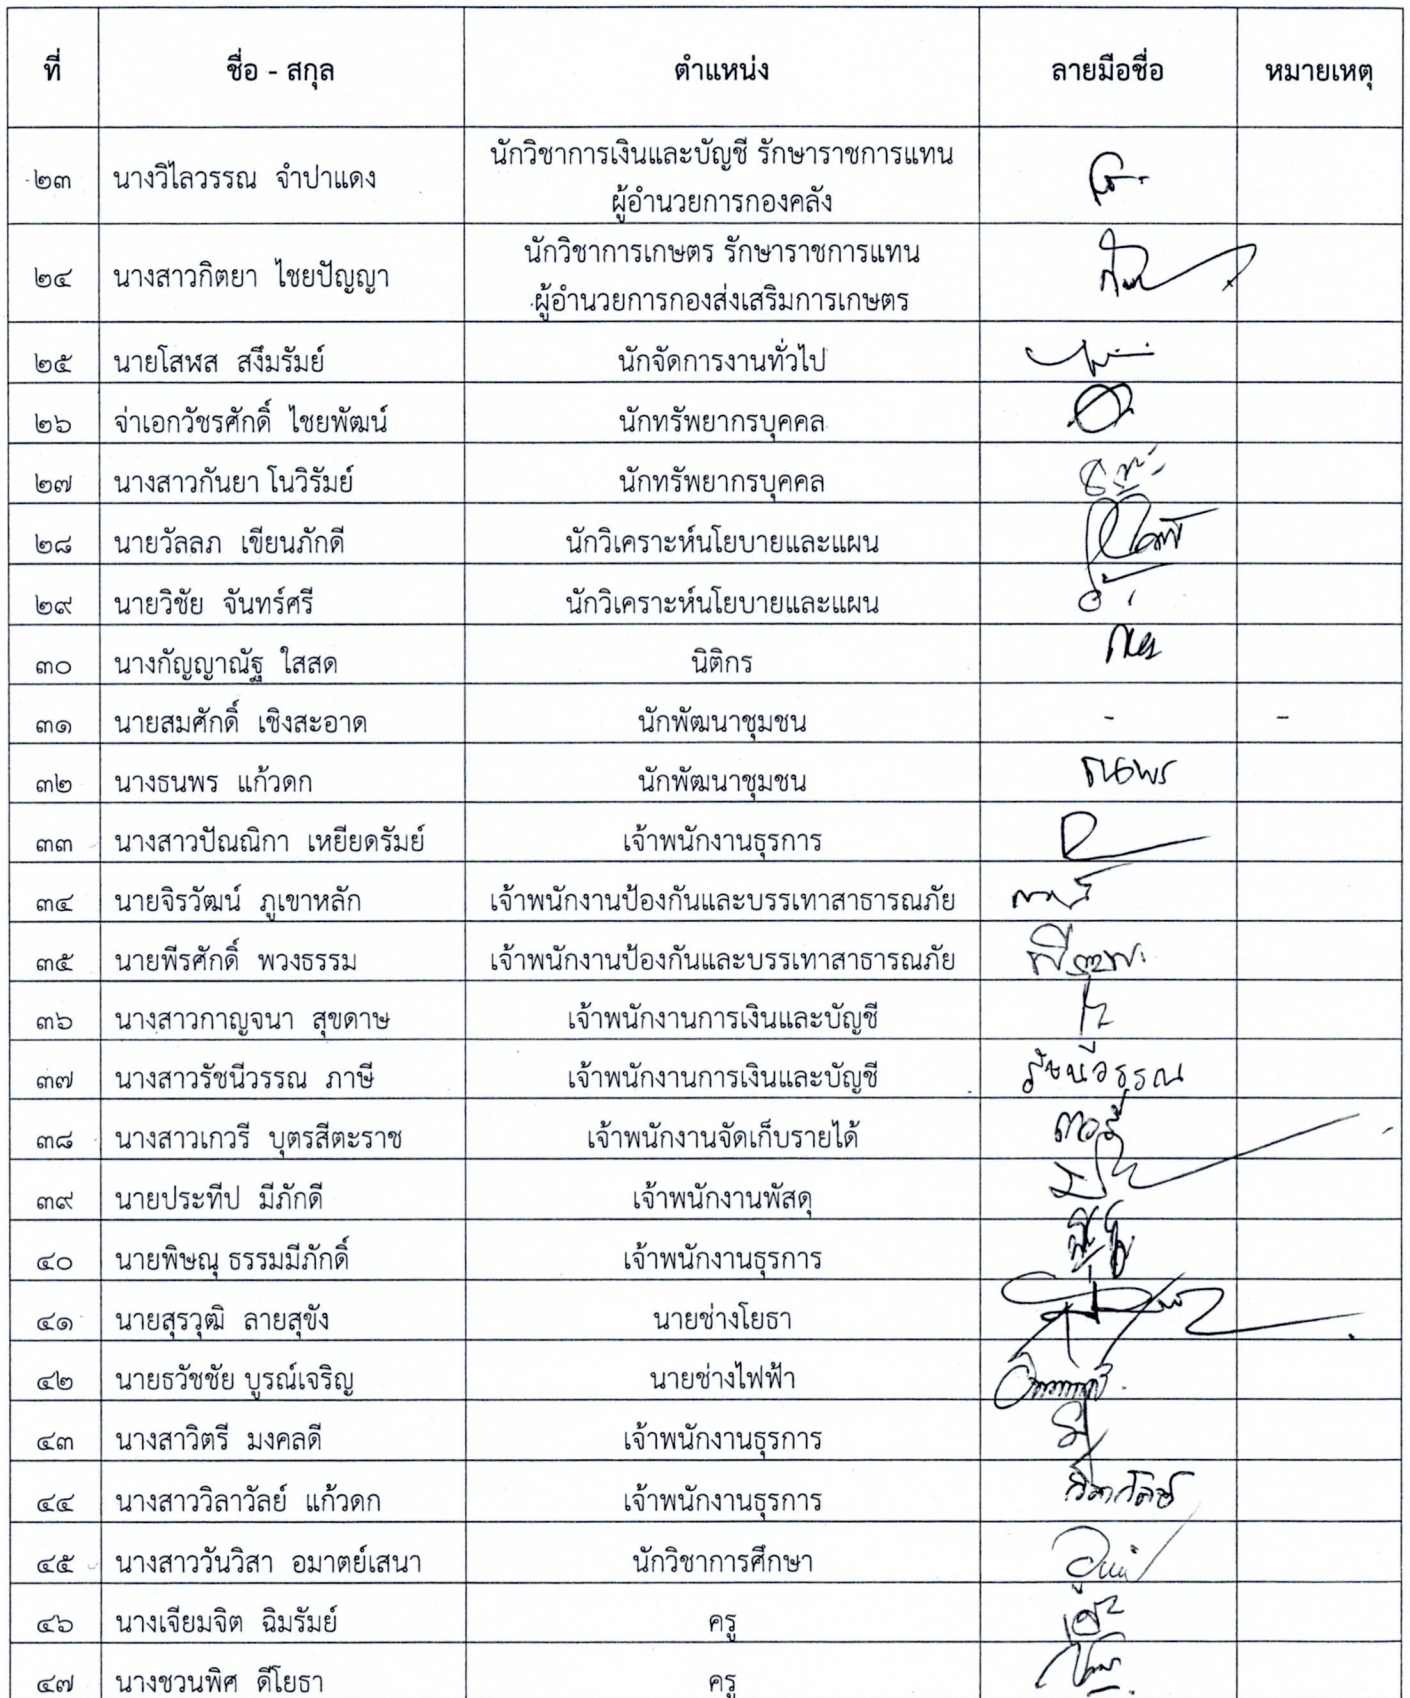 ที่ ชื่อ - สกุล ตำแหน่ง ลายมือชื่อ หมายเหตุ
๒๓ นางวิไลวรรณ จำปาแดง นักวิชาการเงินและบัญชี รักษาราชการแทน
ผู้อำนวยการกองคลัง
๒๔ นางสาวกิตยา ไชยปัญญา นักวิชาการเกษตร รักษาราชการแทน
ผู้อำนวยการกองส่งเสริมการเกษตร
๒๕ นายโสฬส สงึมรัมย์ นักจัดการงานทั่วไป
๒๖ จ่าเอกวัชรศักดิ์ ไชยพัฒน์ นักทรัพยากรบุคคล
๒๗ นางสาวกันยา โนวิรัมย์ นักทรัพยากรบุคคล
๒๘ นายวัลลภ เขียนภักดี นักวิเคราะห์นโยบายและแผน
๒๙ นายวิชัย จันทร์ศรี นักวิเคราะห์นโยบายและแผน
๓๐ นางกัญญาณัฐ ใสสด นิติกร
๓๑ นายสมศักดิ์ เชิงสะอาด นักพัฒนาชุมชน - -
๓๒ นางธนพร แก้วดก นักพัฒนาชุมชน ธนพร
๓๓ นางสาวปัณณิกา เหยียดรัมย์ เจ้าพนักงานธุรการ
๓๔ นายจิรวัฒน์ ภูเขาหลัก เจ้าพนักงานป้องกันและบรรเทาสาธารณภัย
๓๕ นายพีรศักดิ์ พวงธรรม เจ้าพนักงานป้องกันและบรรเทาสาธารณภัย
๓๖ นางสาวกาญจนา สุขดาษ เจ้าพนักงานการเงินและบัญชี
๓๗ นางสาวรัชนีวรรณ ภาษี เจ้าพนักงานการเงินและบัญชี รัชนีวรรณ
๓๘ นางสาวเกวรี บุตรสีตะราช เจ้าพนักงานจัดเก็บรายได้
๓๙ นายประทีป มีภักดี เจ้าพนักงานพัสดุ
๔๐ นายพิษณุ ธรรมมีภักดิ์ เจ้าพนักงานธุรการ
๔๑ นายสุรวุฒิ ลายสุขัง นายช่างโยธา
๔๒ นายธวัชชัย บูรณ์เจริญ นายช่างไฟฟ้า
๔๓ นางสาวิตรี มงคลดี เจ้าพนักงานธุรการ
๔๔ นางสาววิลาวัลย์ แก้วดก เจ้าพนักงานธุรการ วิลาวัลย์
๔๕ นางสาววันวิสา อมาตย์เสนา นักวิชาการศึกษา
๔๖ นางเจียมจิต ฉิมรัมย์ ครู
๔๗ นางชวนพิศ ดีโยธา ครู